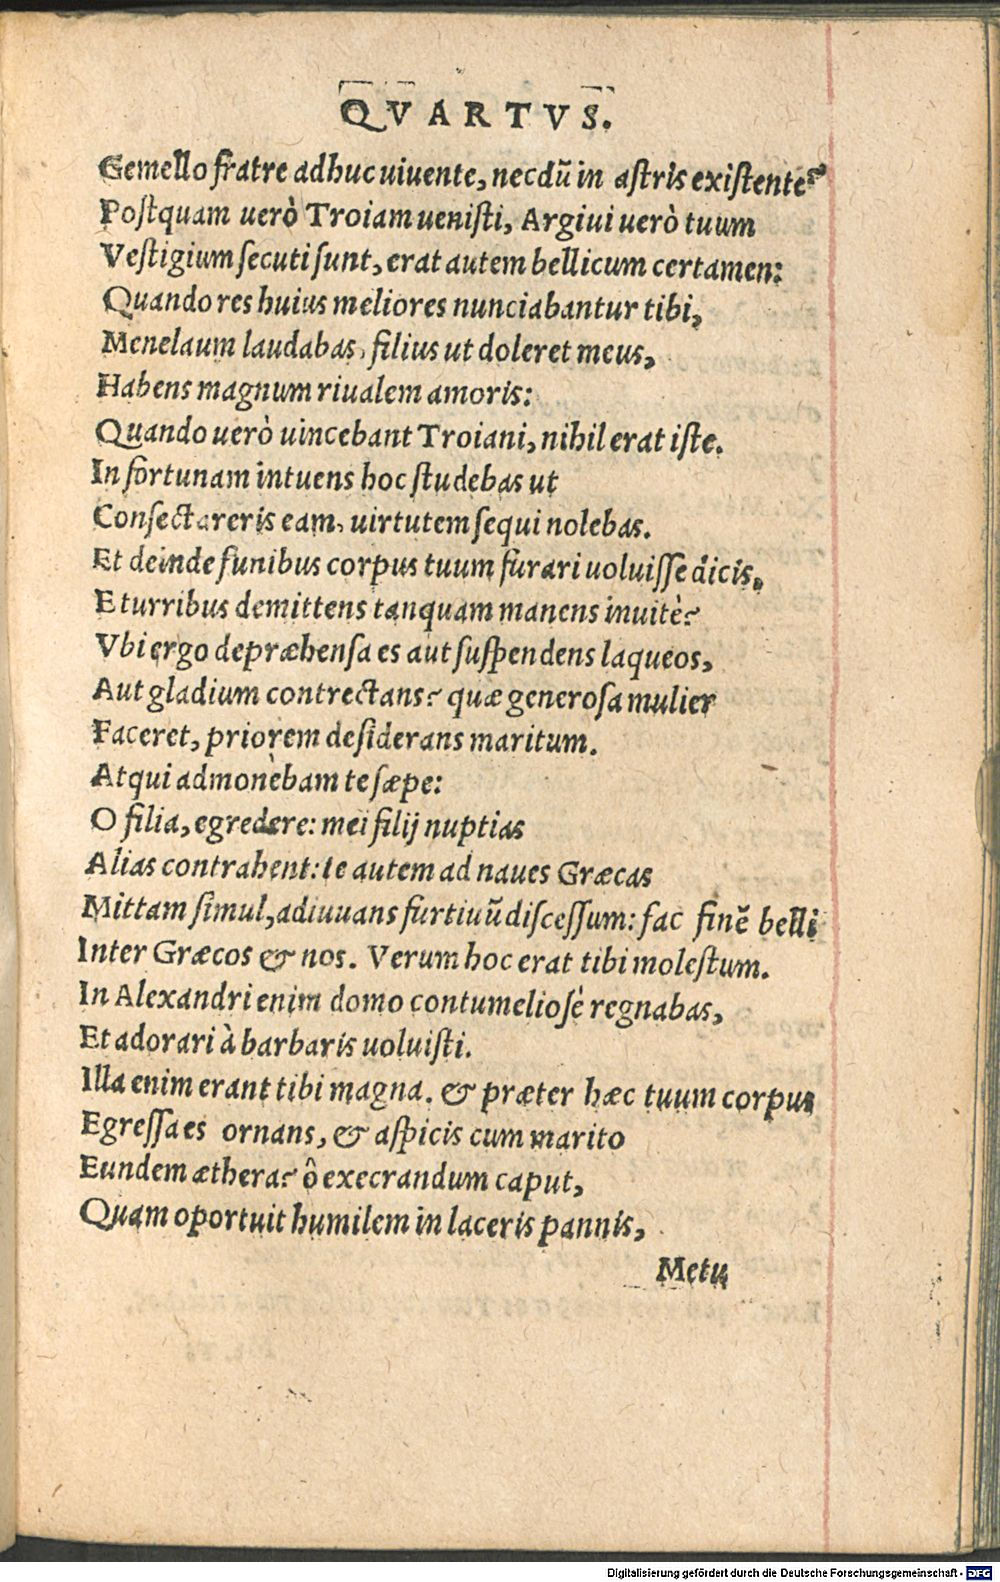 QVARTVS.
Gemello fratre adhuc uiuente, necdū in astris existente?
Postquam uerò Troiam uenisti, Argiui uerò tuum
Vestigium secuti sunt, erat autem bellicum certamen:
Quando res huius meliores nunciabantur tibi,
Menelaum laudabas, filius ut doleret meus,
Habens magnum riualem amoris:
Quando uerò uincebant Troiani, nihil erat iste.
In fortunam intuens hoc studebas ut
Consectareris eam, uirtutem sequi nolebas.
Et deinde funibus corpus tuum furari uoluisse dicis,
E turribus demittens tanquam manens inuitè?
Vbi ergo depræhensa es aut suspendens laqueos,
Aut gladium contrectans? quæ generosa mulier
Faceret, priorem desiderans maritum.
Atqui admonebam te sæpe:
O filia, egredere: mei filij nuptias
Alias contrahent: te autem ad naues Græcas
Mittam simul, adiuuans furtiuū discessum: fac finē belli
Inter Græcos & nos. Verum hoc erat tibi molestum.
In Alexandri enim domo contumeliosè regnabas,
Et adorari à barbaris uoluisti.
Illa enim erant tibi magna. & præter hæc tuum corpus
Egressa es ornans, & aspicis cum marito
Eundem æthera? ô execrandum caput,
Quam oportuit humilem in laceris pannis,
Metu
Digitalisierung gefördert durch die Deutsche Forschungsgemeinschaft - DFG